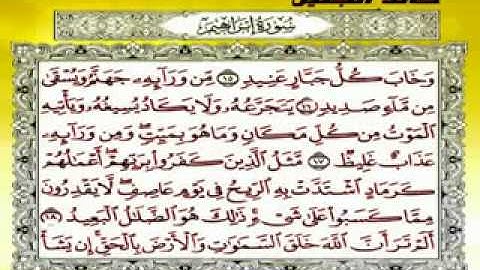 سورة إبراهيم
وَخَابَ كُلُّ جَبَّارٍ عَنِيدٍ ١٥ مِّن وَرَآئِهِۦ جَهَنَّمُ وَيُسْقَىٰ
مِن مَّآءٍ صَدِيدٍ ١٦ يَتَجَرَّعُهُۥ وَلَا يَكَادُ يُسِيغُهُۥ وَيَأْتِيهِ
ٱلْمَوْتُ مِن كُلِّ مَكَانٍ وَمَا هُوَ بِمَيِّتٍ ۖ وَمِن وَرَآئِهِۦ
عَذَابٌ غَلِيظٌ ١٧ مَّثَلُ ٱلَّذِينَ كَفَرُوا۟ بِرَبِّهِمْ ۖ أَعْمَٰلُهُمْ
كَرَمَادٍ ٱشْتَدَّتْ بِهِ ٱلرِّيحُ فِى يَوْمٍ عَاصِفٍ ۖ لَّا يَقْدِرُونَ
مِمَّا كَسَبُوا۟ عَلَىٰ شَىْءٍ ۚ ذَٰلِكَ هُوَ ٱلضَّلَٰلُ ٱلْبَعِيدُ ١٨
أَلَمْ تَرَ أَنَّ ٱللَّهَ خَلَقَ ٱلسَّمَٰوَٰتِ وَٱلْأَرْضَ بِٱلْحَقِّ ۚ إِن يَشَأْ